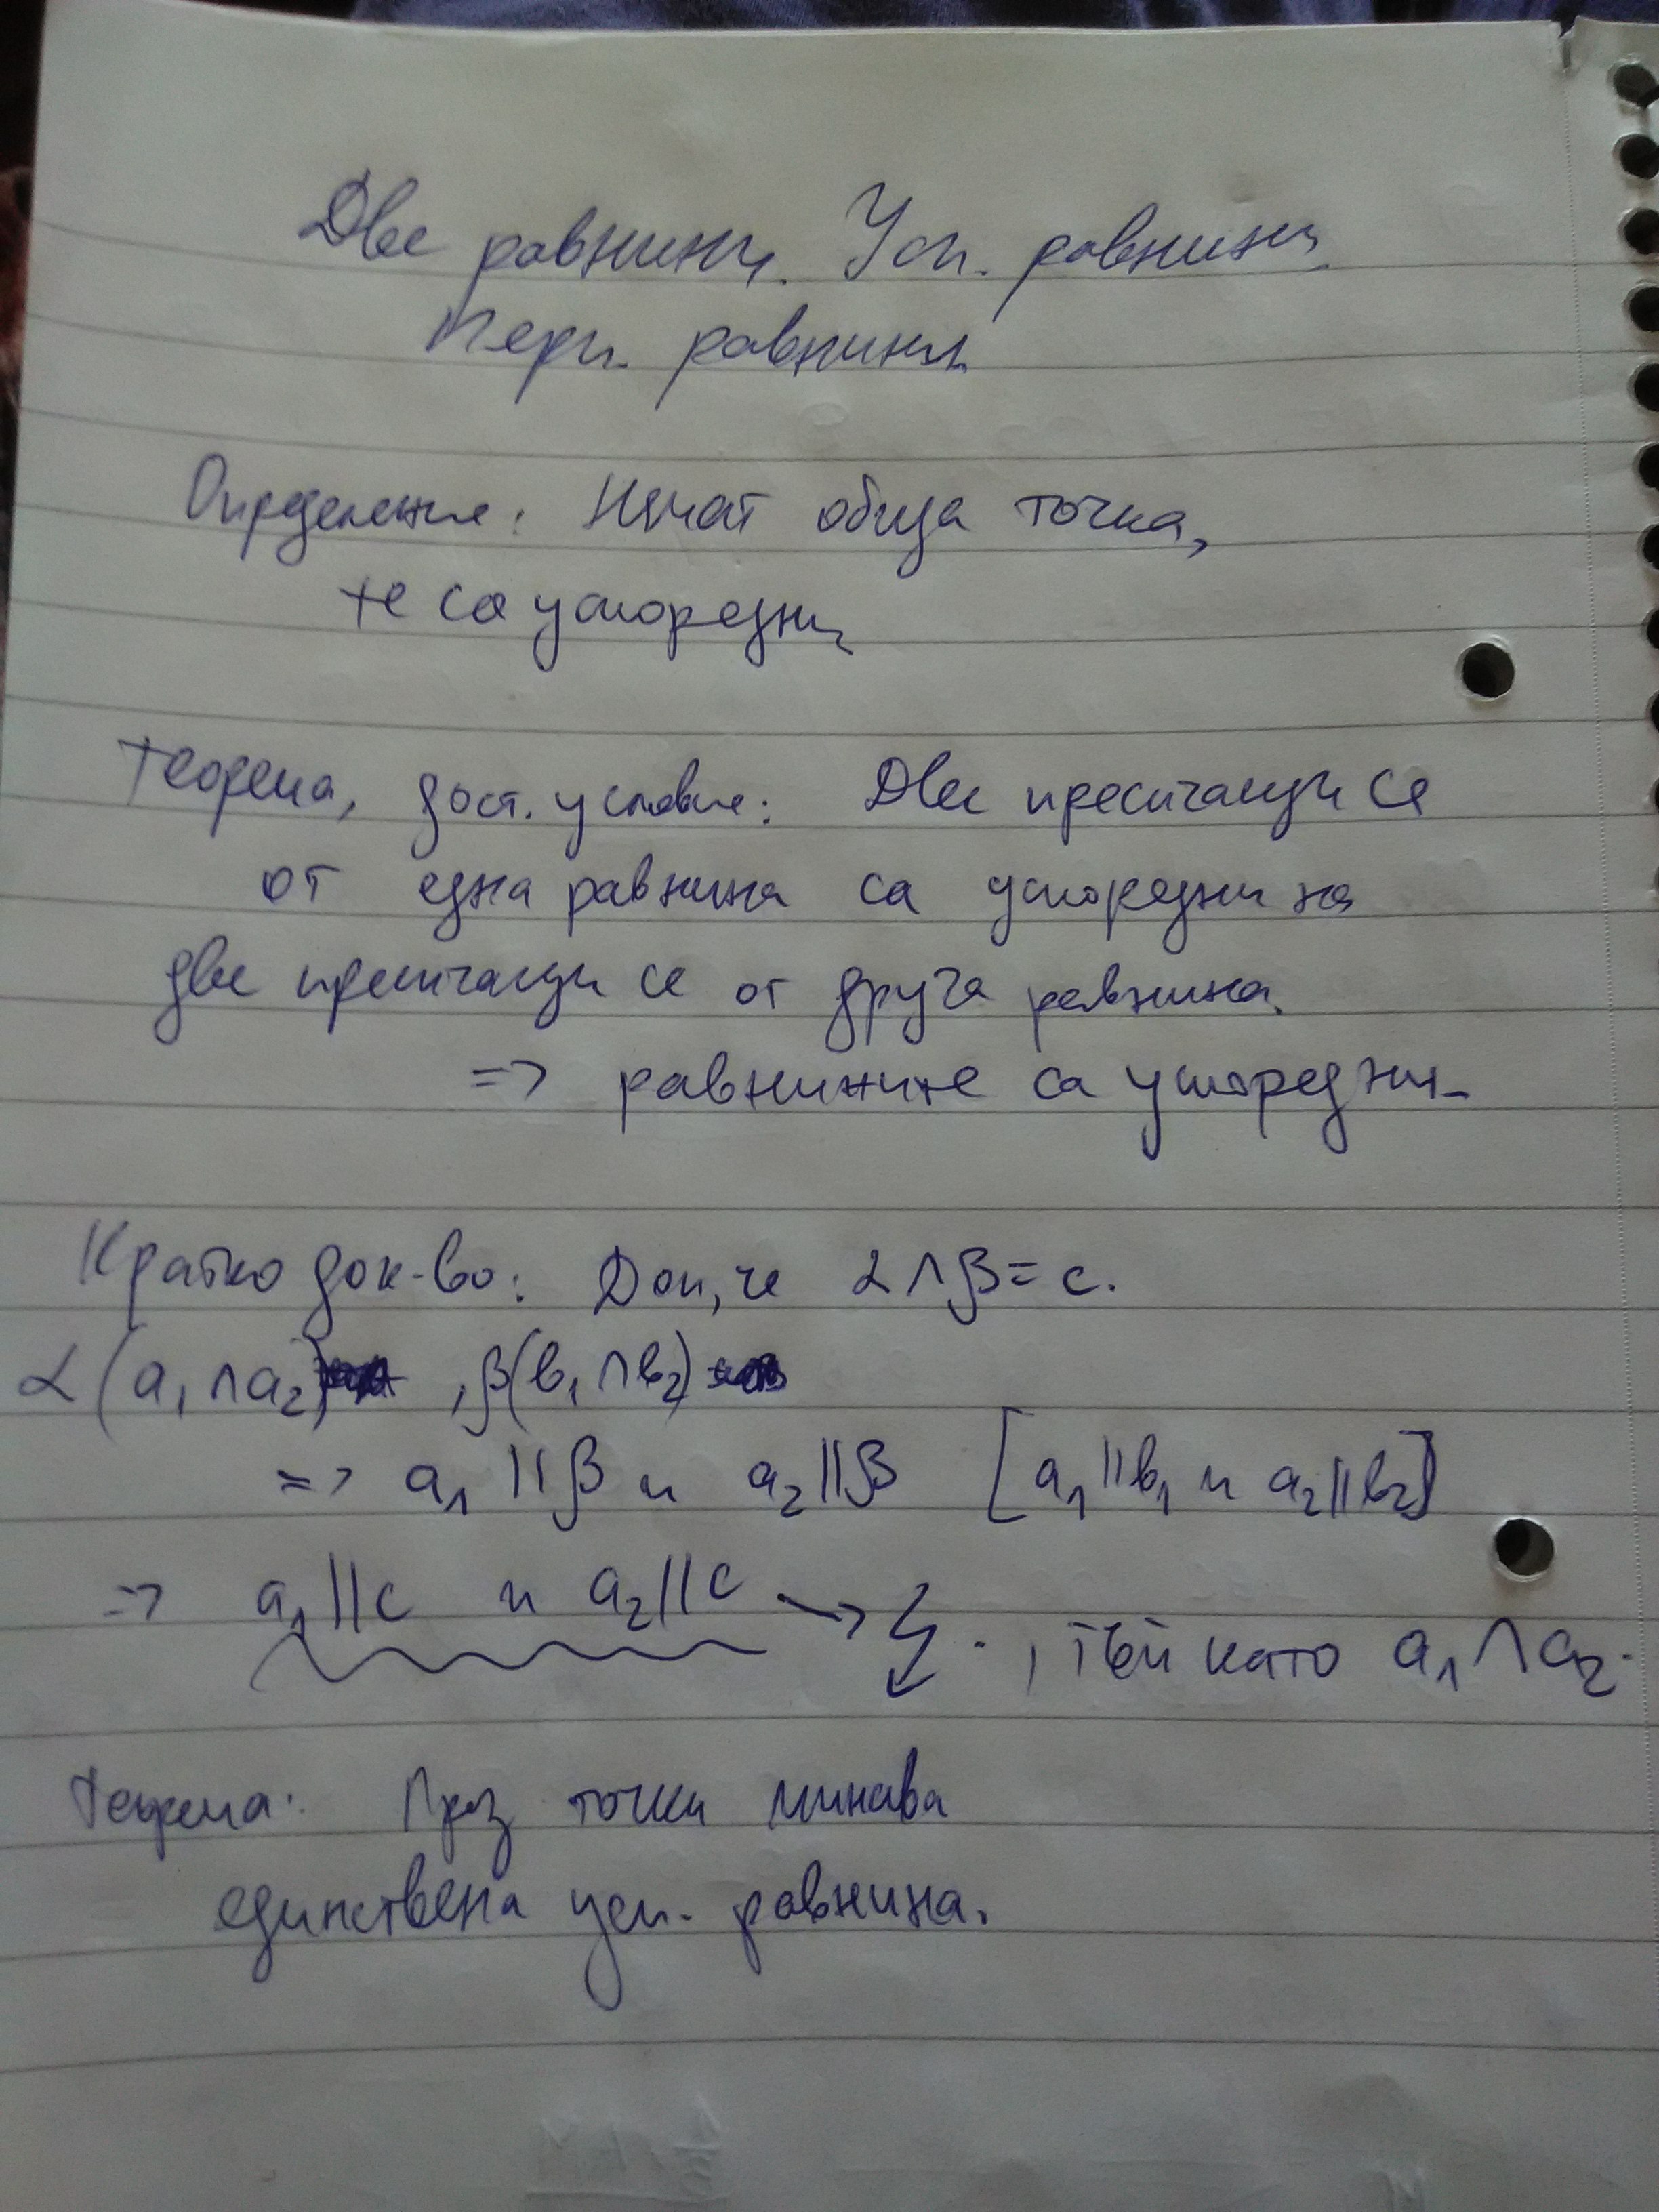 Две равнини. Усп. равнини.
Перп. равнини.
Определение: Нямат обща точка,
те са успоредни
Теорема, дост. условие: Две пресичащи се
от една равнина са успоредни на
две пресичащи се от друга равнина.
=> равнините са успоредни.
Кратко док-во: Доп, че α∩β = c.
α(a₁∩a₂) , β(b₁∩b₂)
=> a₁ || β и a₂ || β [a₁ || b₁ и a₂ || b₂]
=> a₁ || c и a₂ || c → ↯. , тъй като a₁∩a₂.
Теорема: През точки минава
единствена усп. равнина.